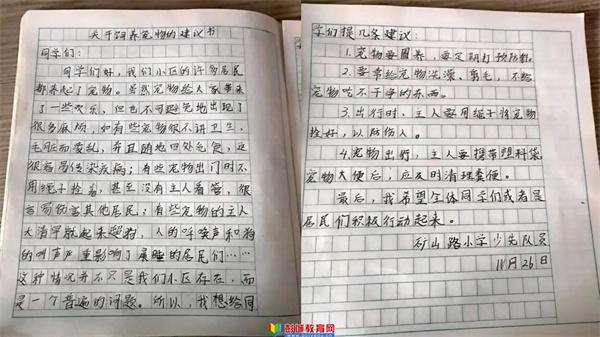 关于饲养宠物的建议书
同学们：
同学们好，我们小区的许多居民
都养起了宠物。虽然宠物给大家带来
了一些欢乐，但也不可避免地出现了
很多麻烦，如有些宠物很不讲卫生，
毛脏而凌乱，并且随地四处毛包，这
很容易传染疾病；有些宠物出门时不
用绳子拴着，甚至没有主人看管，很
容易伤害其他居民；有些宠物的主人
大清早就起来遛狗，人的呼唤声和狗
的叫声严重影响了晨睡的居民们……
这种情况并不只是我们小区存在，而
是一个普遍的问题。所以，我想给同
学们提几条建议：
1.宠物要圈养，要定期打预防针。
2.要常给宠物洗澡、剪毛，不给
宠物吃不干净的东西。
3.出行时，主人要用绳子将宠物
拴好，以防伤人。
4.宠物出行，主人要携带塑料袋，
宠物大便后，应及时清理粪便。
最后，我希望全体同学们或者是
居民们积极行动起来。
矿山路小学少先队员
11月26日
彭城教育网